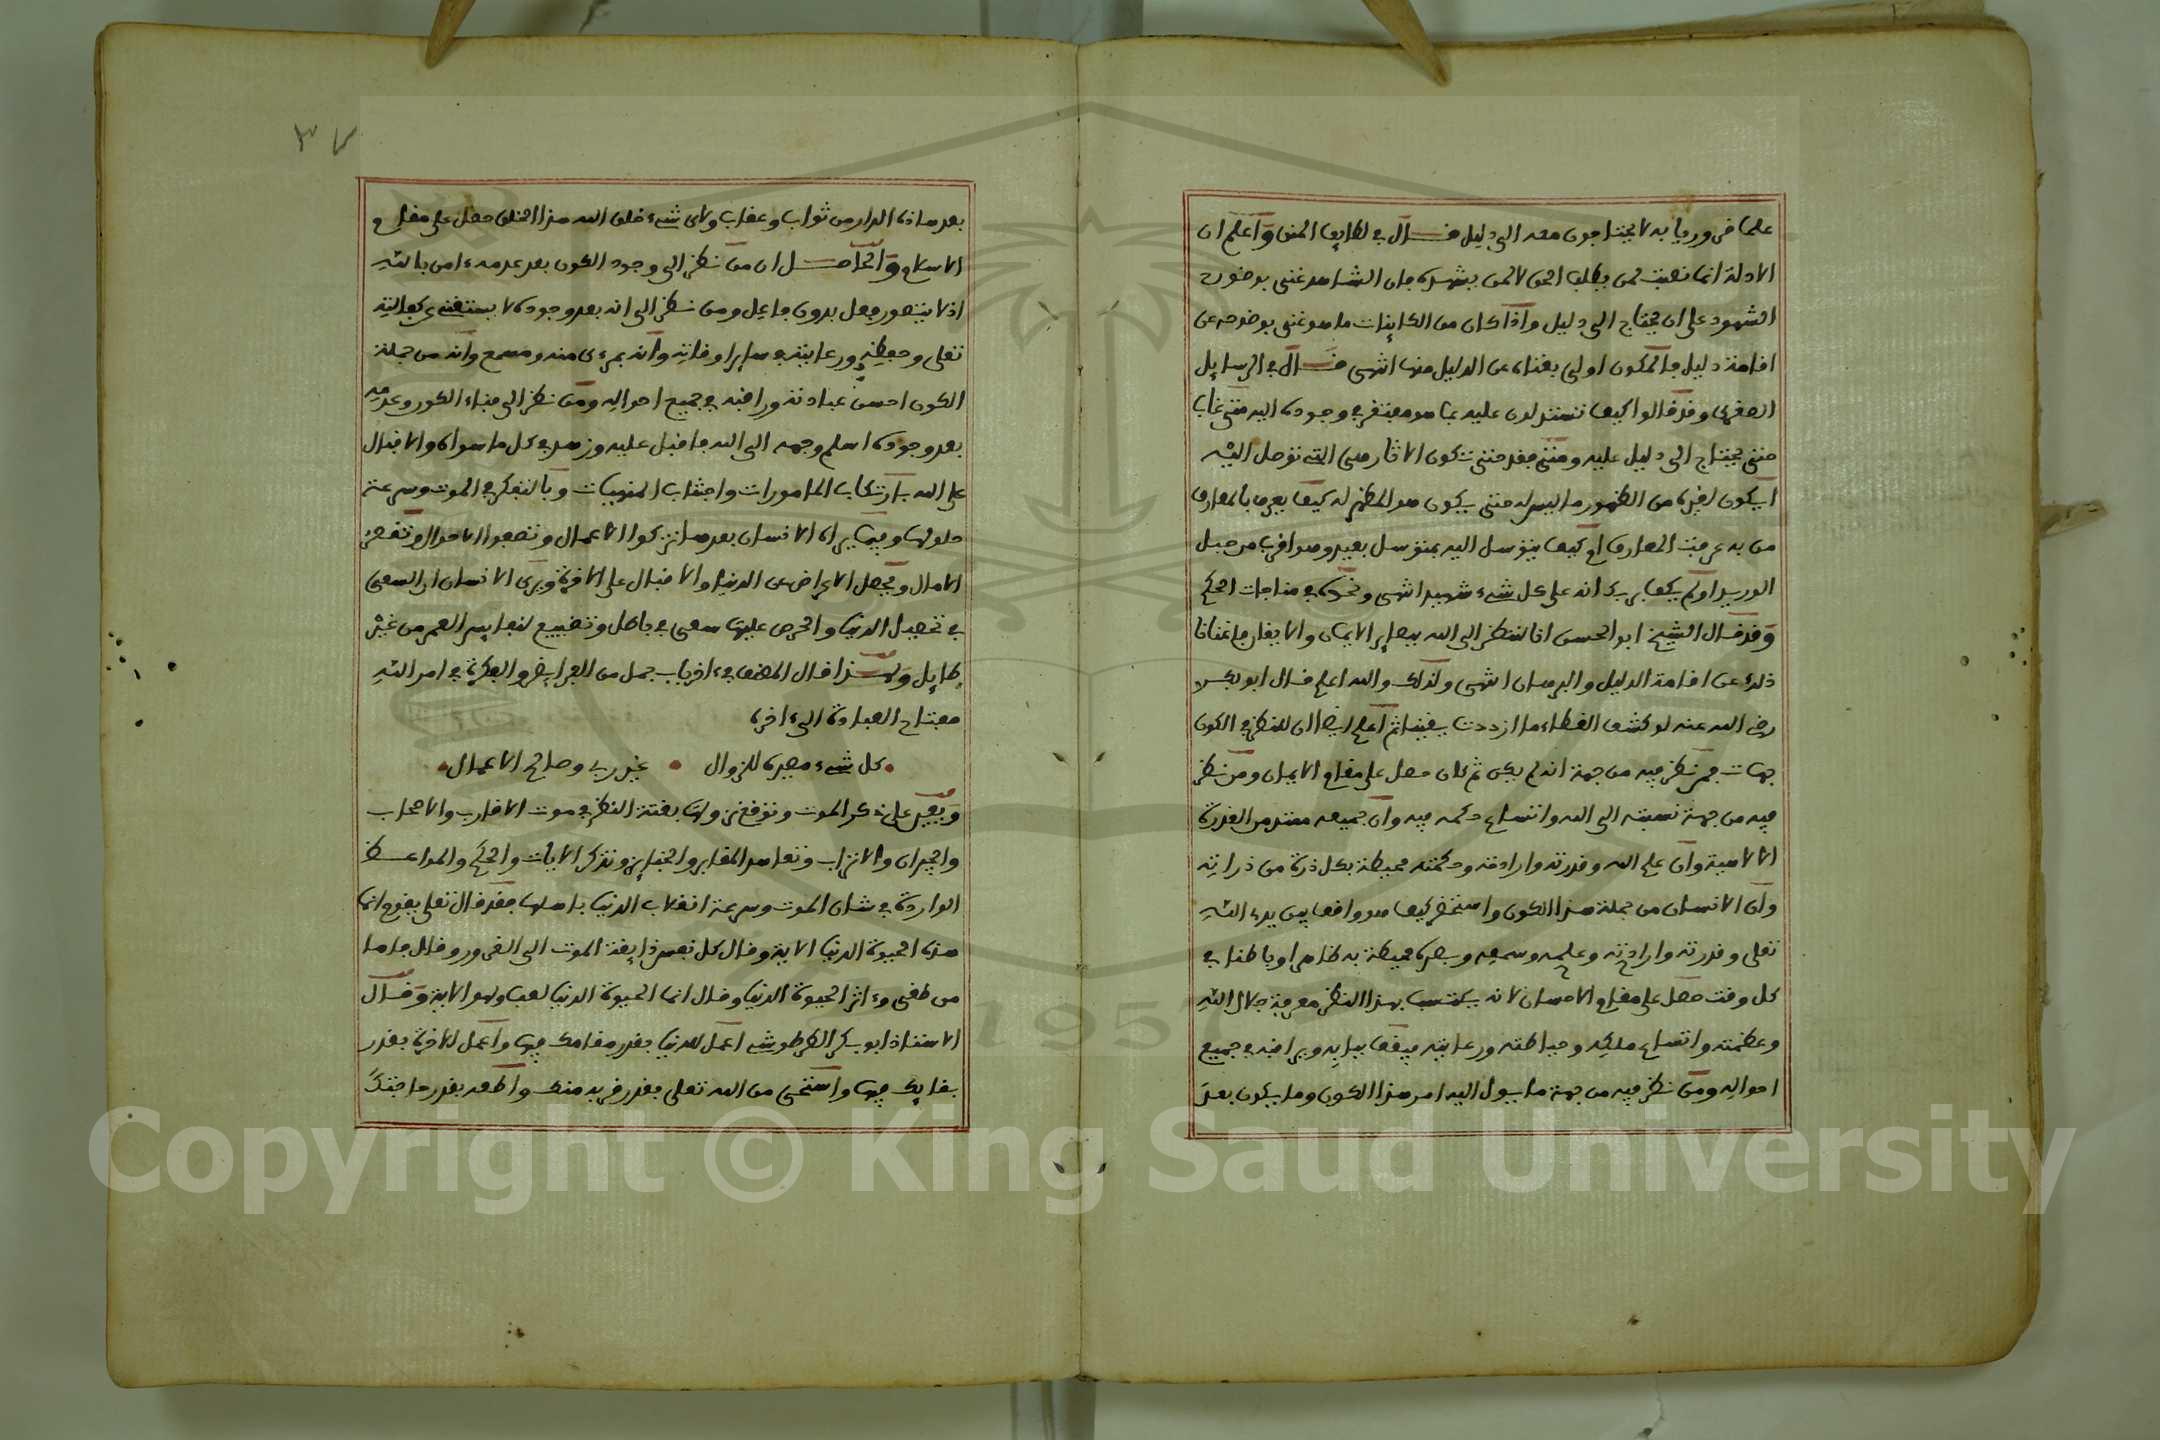 علما ضروريا به لا يحتاجون معه الى دليل قال في لطايف المنن واعلم ان
الادلة انما نصبت لمن يطلب الحق لا لمن يشهده فان الشاهد غني بوضوح
الشهود على ان يحتاج الى دليل واذا كان من الكاينات ما هو غني بوضوحه عن
اقامة دليل فالمكون اولى بغناه عن الدليل منها انتهى قال في الرسايل
الصغرى وقد قالوا كيف تستدلون عليه بما هو مفتقر في وجوده اليه متى غاب
حتى يحتاج الى دليل عليه ومتى فقد حتى تكون الاثار هي التي توصل اليه
ايكون لغيره من الظهور ما ليس له حتى يكون هو المظهر له كيف يعرف بالمعارف
من به عرفت المعارف او كيف يتوسل اليه بمتوسل بعيد وهو اقرب من حبل
الوريد اولم يكف بربك انه على كل شيء شهيد انتهى ونحوه في مناجات الحكم
وقد قال الشيخ ابو الحسن انا لننظر الى الله ببصاير الايمان والايقان فاغنانا
ذلك عن اقامة الدليل والبرهان انتهى ولذلك والله اعلم قال ابو بكر
رضي الله عنه لو كشف الغطاء ما ازددت يقينا ثم اعلم ايضا ان للنظر في الكون
جهات فمن نظر فيه من جهة انه لم يكن ثم كان حصل على مقام الايمان ومن نظر
فيه من جهة نسبته الى الله واتساع حكمه فيه وان جميعه مستمد من القدرة
الالاهية وان علم الله وقدرته وارادته وحكمته محيطة بكل ذرة من ذراته
وان الانسان من جملة هذا الكون واستحضر كيف هو واقف بين يدي الله
تعلى وقدرته وارادته وعلمه وسمعه وبصره محيطة به ظاهرا وباطنا في
كل وقت حصل على مقام الاحسان لانه يكتسب بهذا النظر معرفة جلال الله
وعظمته واتساع ملكه وحياطته ورعايته فيقف ببابه ويراقبه في جميع
احواله ومن نظر فيه من جهة ما يـول اليه امر هذا الكون وما يكون بعد
٣٧
بعد هاذه الدار من ثواب وعقاب ولاي شيء خلق الله هذا الخلق حصل على مقام
الاسلام والحاصل ان من نظر الى وجود الكون بعد عدمه ءامن بالله
اذ لا يتصور فعل بدون فاعل ومن نظر الى انه بعد وجوده لا يستغني عن كفالته
تعلى وحفظه ورعايته في ساير اوقاته وانه بمرءى منه ومسمع وانه من جملة
الكون احسن عبادته وراقبه في جميع احواله ومن نظر الى فناء الكون وعدمه
بعد وجوده اسلم وجهه الى الله فاقبل عليه وزهد في كل ما سواه والاقبال
على الله بارتكاب المامورات واجتناب المنهيات وبالتفكر في الموت وسرعة
حلولها وفيما يراه الانسان بعدها تزكوا الاعمال وتصفوا الاحوال وتقصر
الامال ويحصل الاعراض عن الدنيا والاقبال على الاخرة ويرى الانسان ان السعي
في تحصيل الدنيا والحرص عليها سعي في باطل وتضييع لنفايس العمر من غير
طايل ولهذا قال المصنف في ءاخر باب جمل من الفرايض والفكرة في امر الله
مفتاح العبادة الى ءاخره
كل شيء مصيره للزوال • غير ربي وصالح الاعمال
ويعين على ذكر الموت وتوقع نزولها بغتة النظر في موت الاقارب والاصحاب
والجيران والاتراب وتعاهد المقابر والجنايز وتذكر الايات والحكم والمواعظ
الواردة في شان الموت وسرعة انقلاب الدنيا باهلها فقد قال تعلى يقوم انما
هذه الحيوة الدنيا الاية وقال كل نفس ذايقة الموت الى الغرور وقال فاما
من طغى وءاثر الحيوة الدنيا وقال انما الحيوة الدنيا لعب ولهو الاية وقال
الاستاذ ابو بكر الطرطوشي اعمل للدنيا بقدر مقامك فيها واعمل للاخرة بقدر
بقايك فيها واستحي من الله تعلى بقدر قربه منك واطعه بقدر حاجتك
Copyright © King Saud University
1957